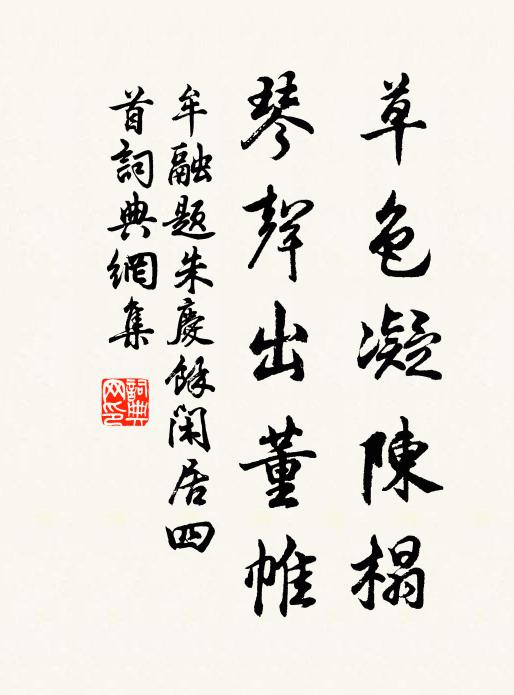 草色凝陳榻
琴聲出董帷
牟融題朱慶餘閑居四
首詞典網集
詞典
网印